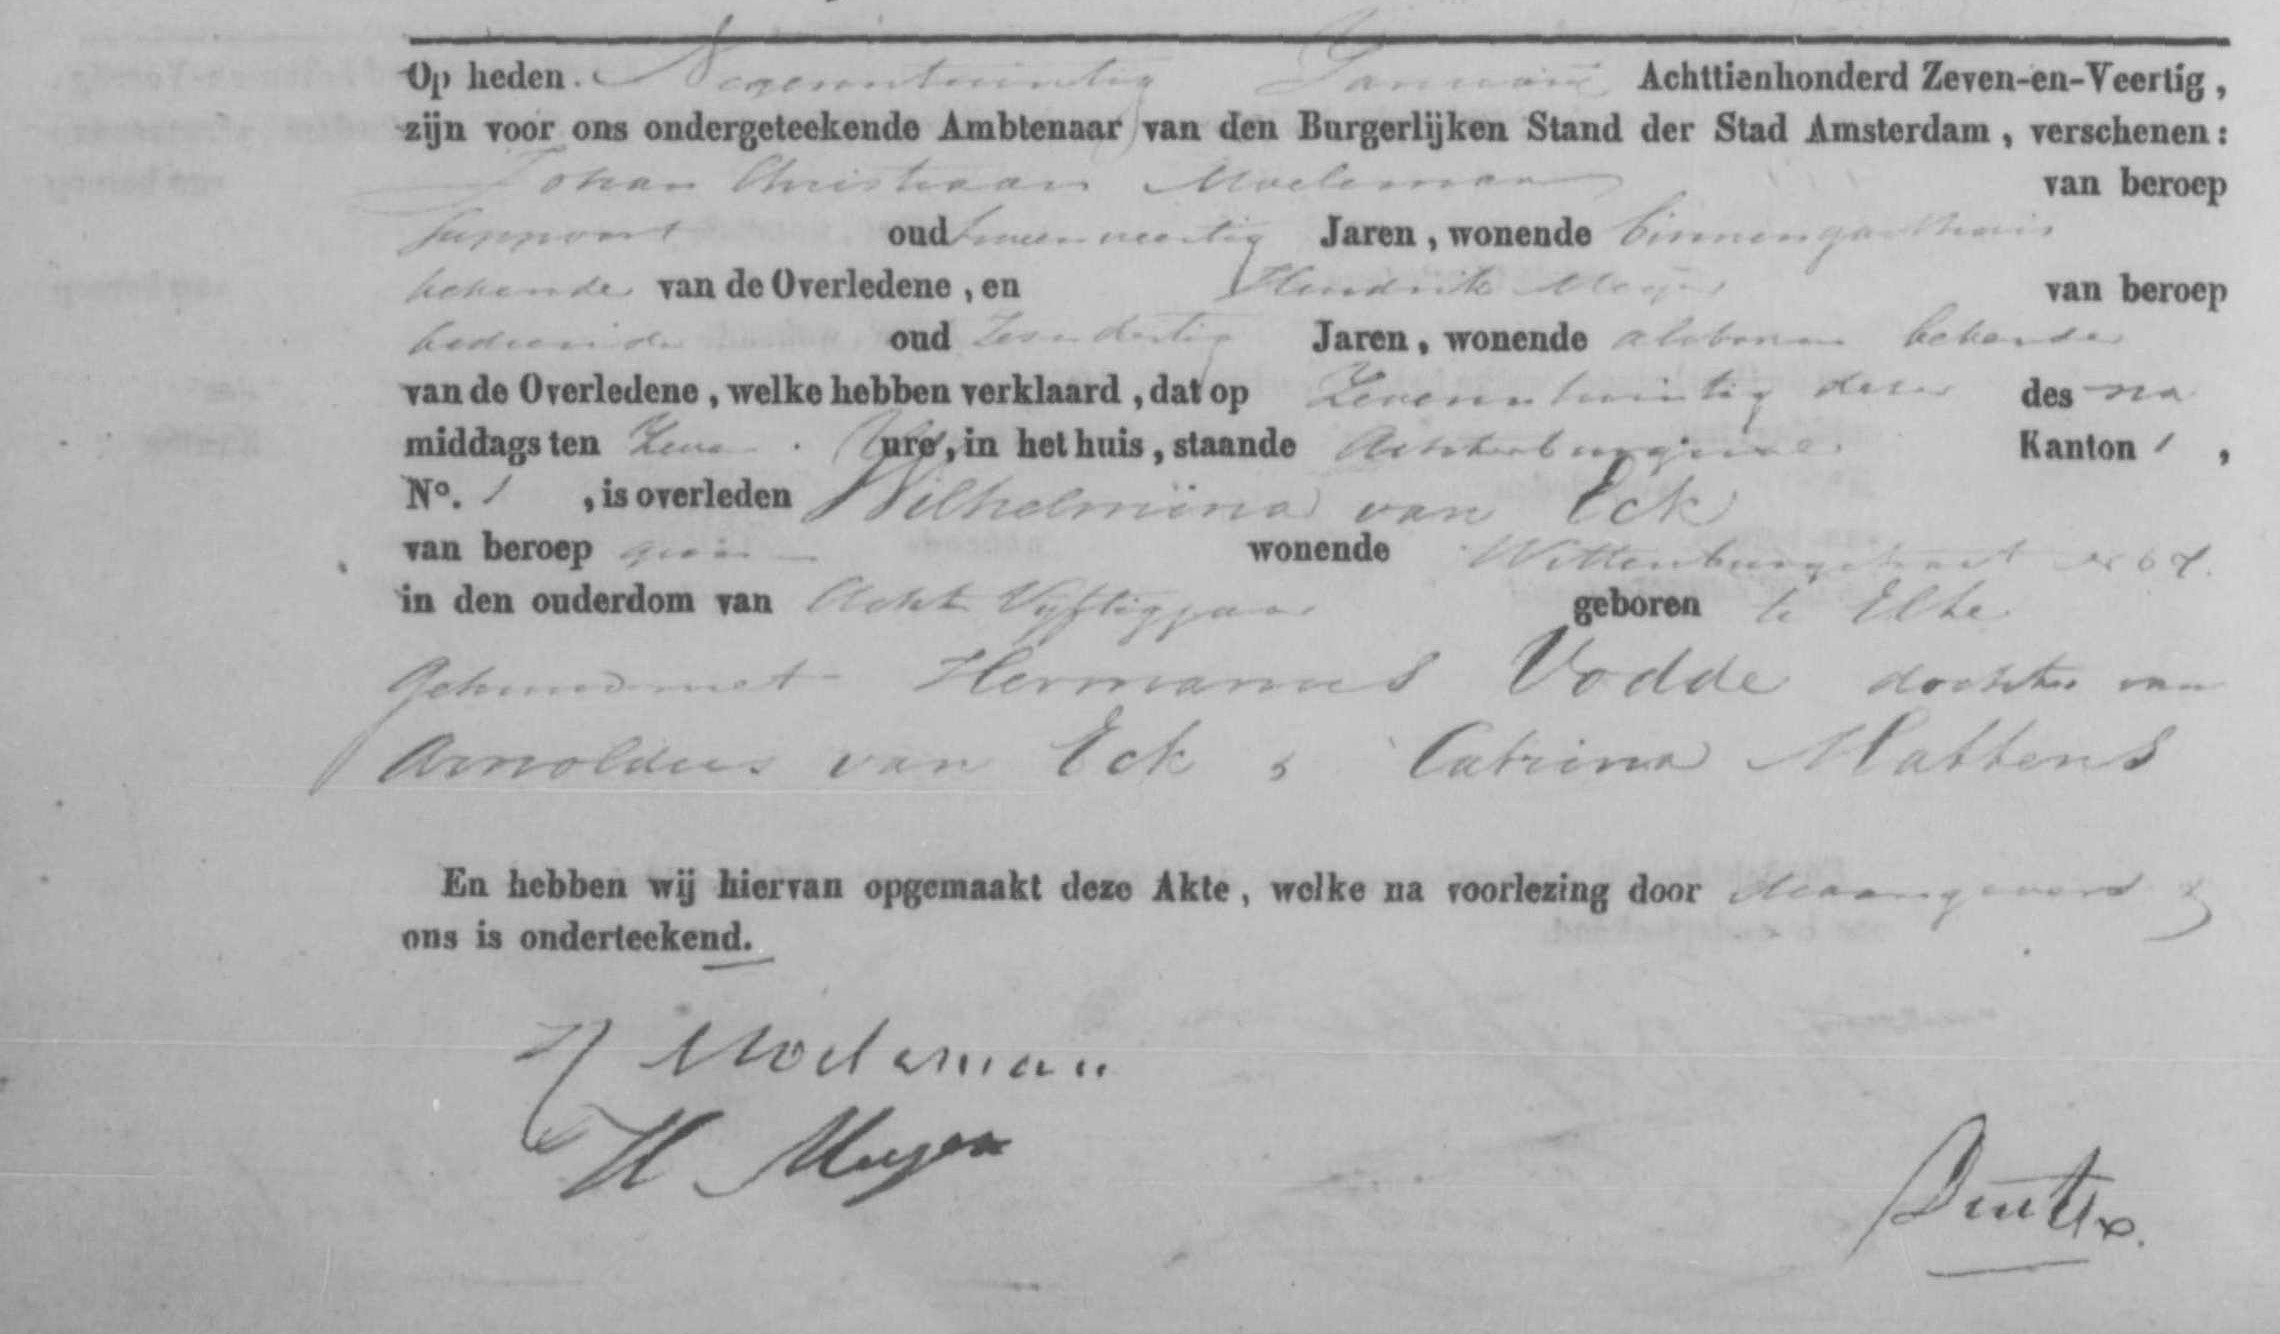 Op heden. Negenentwintig Januarij Achttienhonderd Zeven-en-Veertig,
zijn voor ons ondergeteekende Ambtenaar van den Burgerlijken Stand der Stad Amsterdam, verschenen:
Johan Christiaan Moeleman van beroep
suppoost oud tweenveertig Jaren, wonende binnengasthuis
bekende van de Overledene, en Hendrik Meyer van beroep
bediende oud Zesendertig Jaren, wonende alsboven bekende
van de Overledene, welke hebben verklaard, dat op Zevenentwintig dezer des na
middags ten Zeven ure, in het huis, staande Achterburgwal Kanton 1,
No. 1, is overleden Wilhelmina van Eck
van beroep geen wonende Wittenburgstraat 67.
in den ouderdom van Acht Vijftig jaar geboren te Elte
Gehuwd met Hermanus Vodde dochter van
Arnoldus van Eck & Catrina Mattens
En hebben wij hiervan opgemaakt deze Akte, welke na voorlezing door de aangevers &
ons is onderteekend.
Moeleman
H Meyer